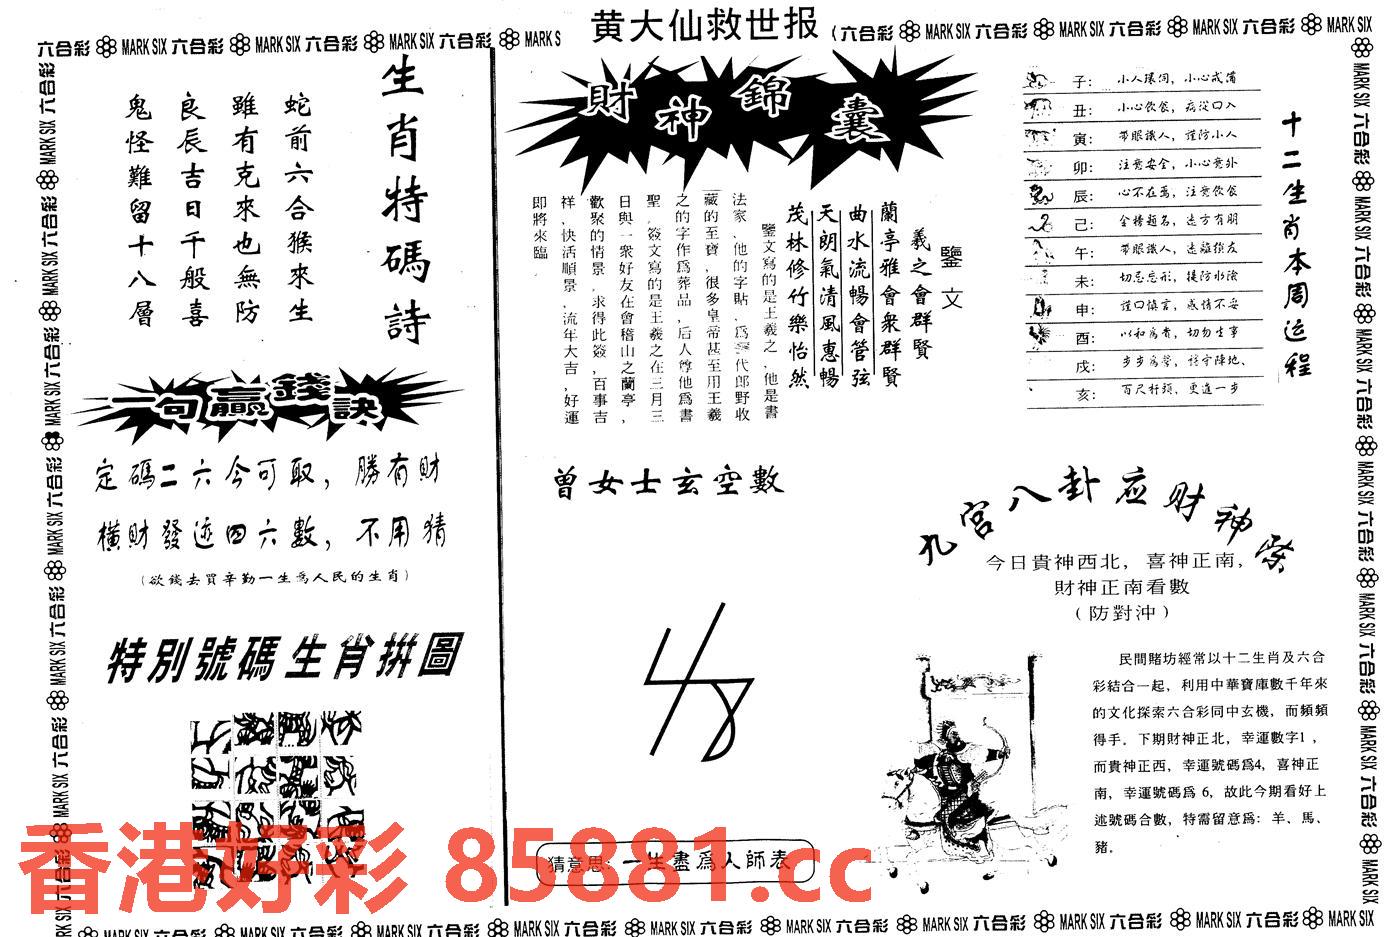 黄大仙救世报
六合彩 MARK SIX 六合彩 MARK SIX 六合彩 MARK SIX 六合彩 MARK S
(六合彩 MARK SIX 六合彩 MARK SIX 六合彩 MARK SIX 六合彩 MARK SIX
生肖特碼詩
蛇前六合猴來生
雖有克來也無防
良辰吉日千般喜
鬼怪難留十八層
一句贏錢訣
定碼二六今可取，勝有財
橫財發迹四六數，不用猜
(欲錢去買辛勤一生為人民的生肖)
特別號碼生肖拼圖
財神錦囊
鑒文
義之會群賢
蘭亭雅會衆群賢
曲水流暢會管弦
天朗氣清風惠暢
茂林修竹樂怡然
鑒文寫的是王義之,他是書
法家、他的字貼,爲 代郎野收
藏的至寶,很多皇帝甚至用王義
之的字作爲葬品,后人尊他爲書
聖.簽文寫的是王義之在三月三
日與一衆好友在會稽山之蘭亭,
歡聚的情景.求得此簽,百事吉
祥,快活順景,流年大吉,好運
即將來臨
曾女士玄空數
猜意思:一生盡爲人師表
十二生肖本周运程
子: 小人環伺，小心戒備
丑: 小心飲食，病從口入
寅: 帶眼識人，謹防小人
卯: 注意安全，小心意外
辰: 心不在焉，注意飲食
己: 金榜題名，遠方有朋
午: 帶眼識人，遠離損友
未: 切忌忘形，提防水險
申: 謹口慎言，感情不妥
酉: 以和爲貴，切勿生事
戌: 步步爲營，穩守陣地、
亥: 百尺杆頭，更進一步
九宫八卦应财神祭
今日貴神西北，喜神正南，
財神正南看數
(防對沖)
民間賭坊經常以十二生肖及六合
彩結合一起，利用中華寶庫數千年來
的文化探索六合彩同中玄機，而頻頻
得手．下期財神正北，幸運數字1，
而貴神正西，幸運號碼爲4，喜神正
南，幸運號碼爲 6，故此今期看好上
述號碼合數，特需留意爲：羊、馬、
豬．
香港好彩 85881.cc
MARK SIX 六合彩 MARK SIX 六合彩 MARK SIX 六合彩 MARK SIX 六合彩 MARK SIX 六合彩 MARK SIX 六合彩 MARK SIX 六合彩 MARK SIX 六合彩 MARK SIX